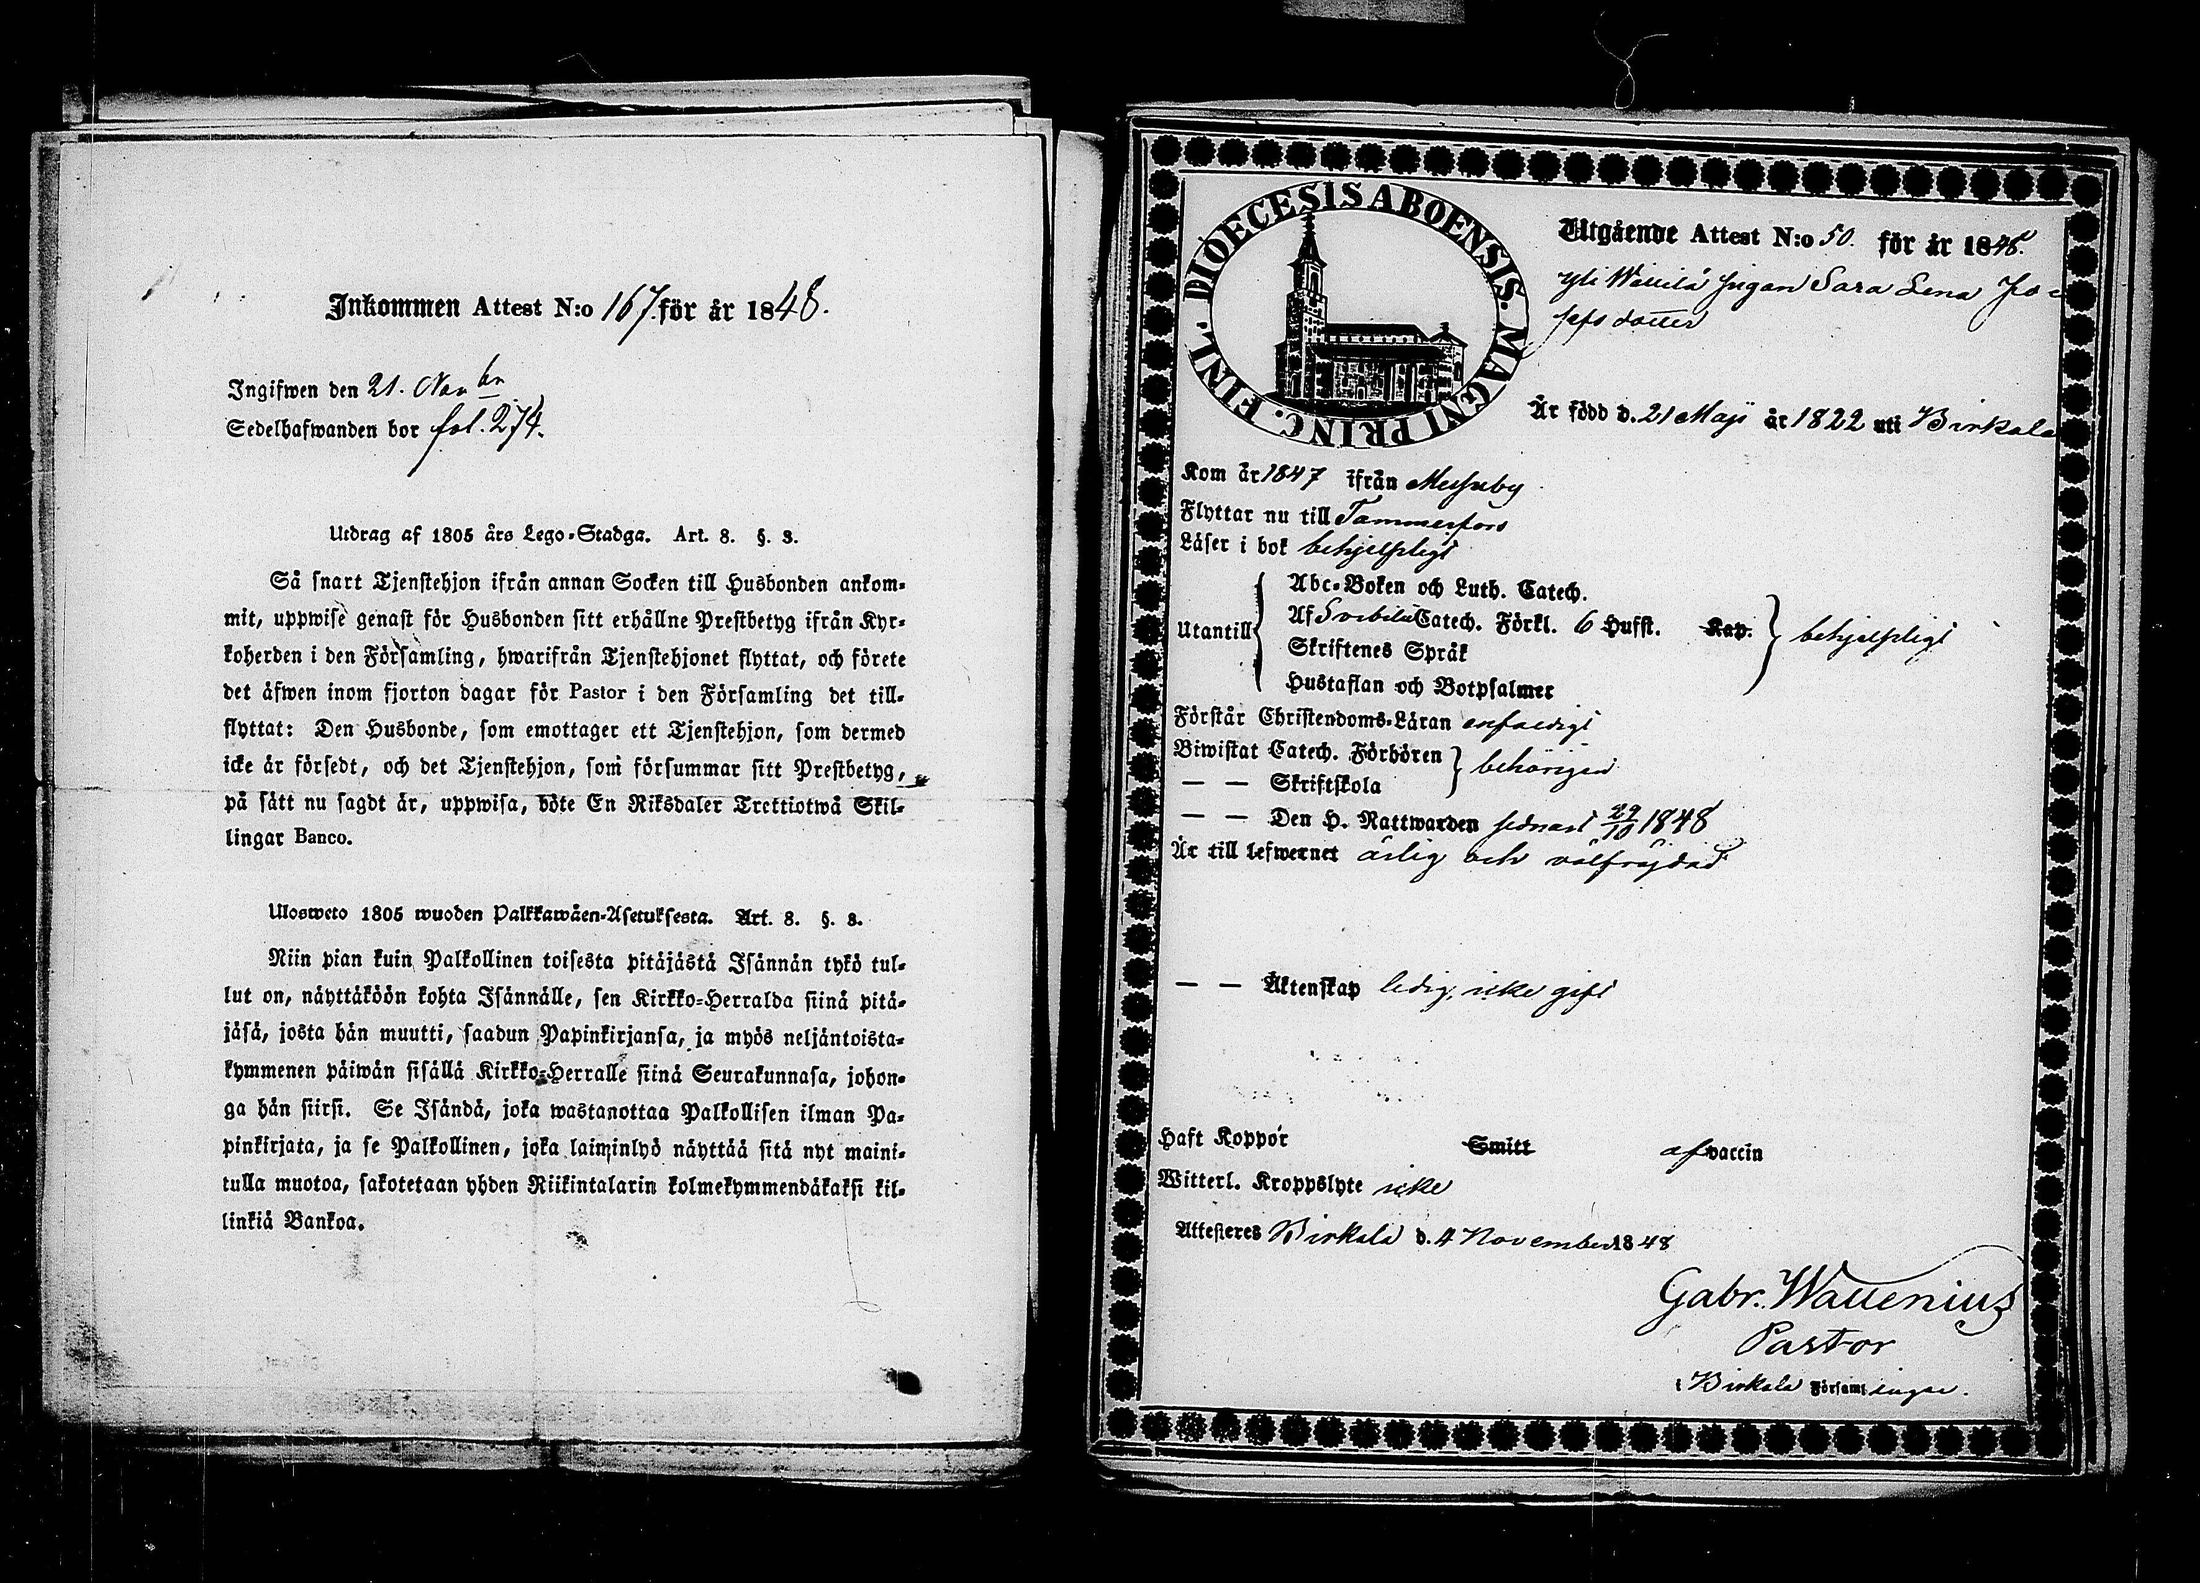 Inkommen Attest N:o 167. för år 1848.
Ingifwen den 21. Novbr
Sedelhafwanden bor fol. 274.
Utdrag af 1805 års Lego-Stadga. Art. 8. §. 3.
Så snart Tjenstehjon ifrån annan Socken till Husbonden ankom-
mit, uppwise genast för Husbonden sitt erhållne Prestbetyg ifrån Kyr-
koherden i den Församling, hwarifrån Tjenstehjonet flyttat, och förete
det äfwen inom fjorton dagar för Pastor i den Församling det till-
flyttat: Den Husbonde, som emottager ett Tjenstehjon, som dermed
icke är försedt, och det Tjenstehjon, som försummar sitt Prestbetyg,
på sätt nu sagdt är, uppwisa, böte En Riksdaler Trettiotwå Skil-
lingar Banco.
Ulosweto 1805 wuoden Palkkawäen-Asetuksesta. Art. 8. §. 3.
Niin pian kuin Palkollinen toisesta pitäjästä Isännän tykö tul-
lut on, näyttäköön kohta Isännälle, sen Kirkko-Herralda siinä pitä-
jäsä, josta hän muutti, saadun Papinkirjansa, ja myös neljäntoista-
kymmenen päiwän sisällä Kirkko-Herralle siinä Seurakunnasa, johon-
ga hän siirsi. Se Isändä, joka wastanottaa Palkollisen ilman Pa-
pinkirjata, ja se Palkollinen, joka laiminlyö näyttää sitä nyt maini-
tulla muotoa, sakotetaan yhden Riikintalarin kolmekymmendäkaksi kil-
linkiä Bankoa.
DIOECESIS ABOENSIS. MAGNI PRINC. FINL.
Utgående Attest N:o 50. för år 1848.
Yli Wällilä pigan Sara Lena Jo-
sefsdotter
Är född d. 21 Maji år 1822 uti Birkala
Kom år 1847 ifrån Messuby
Flyttar nu till Tammerfors
Läser i bok behjelpligt
Utantill
Abc-Boken och Luth. Catech.
Af Svebilii Catech. Förkl. 6 Hufst. Kap. behjelpligt
Skriftenes Språk
Hustaflan och Botpsalmer
Förstår Christendoms-Läran enfaldigt
Biwistat Catech. Förhören behörigen
— — Skriftskola
— — Den H. Nattwarden sednast 29/10 1848
Är till lefwernet ärlig och välfrejdad
— — Äktenskap ledig, icke gift
Haft Koppor Smitt af vaccin
Witterl. Kroppslyte icke
Attesteres Birkala d. 4 November 1848
Gabr. Wallenius
Pastor
i Birkala Församlingar.